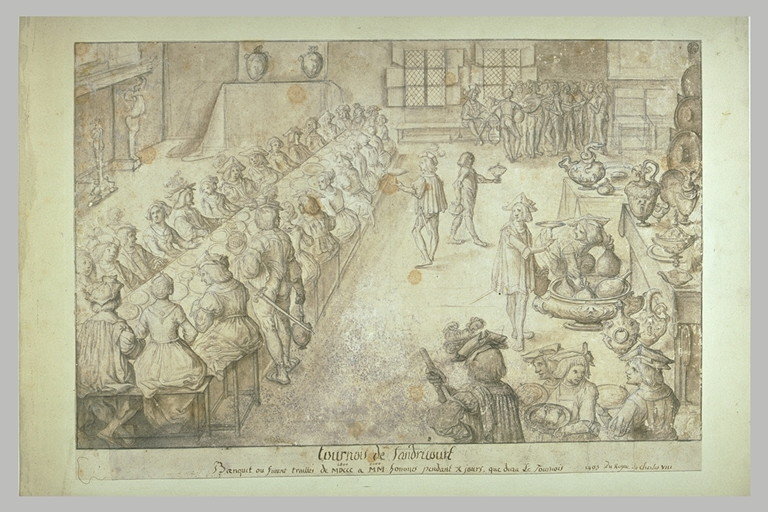 Tournoy de Sandricourt
Banquet ou furent traittés de MDCCC a MM hommes pendant X jours, que dura le Tournois 1493 Du Regne de Charles VIII